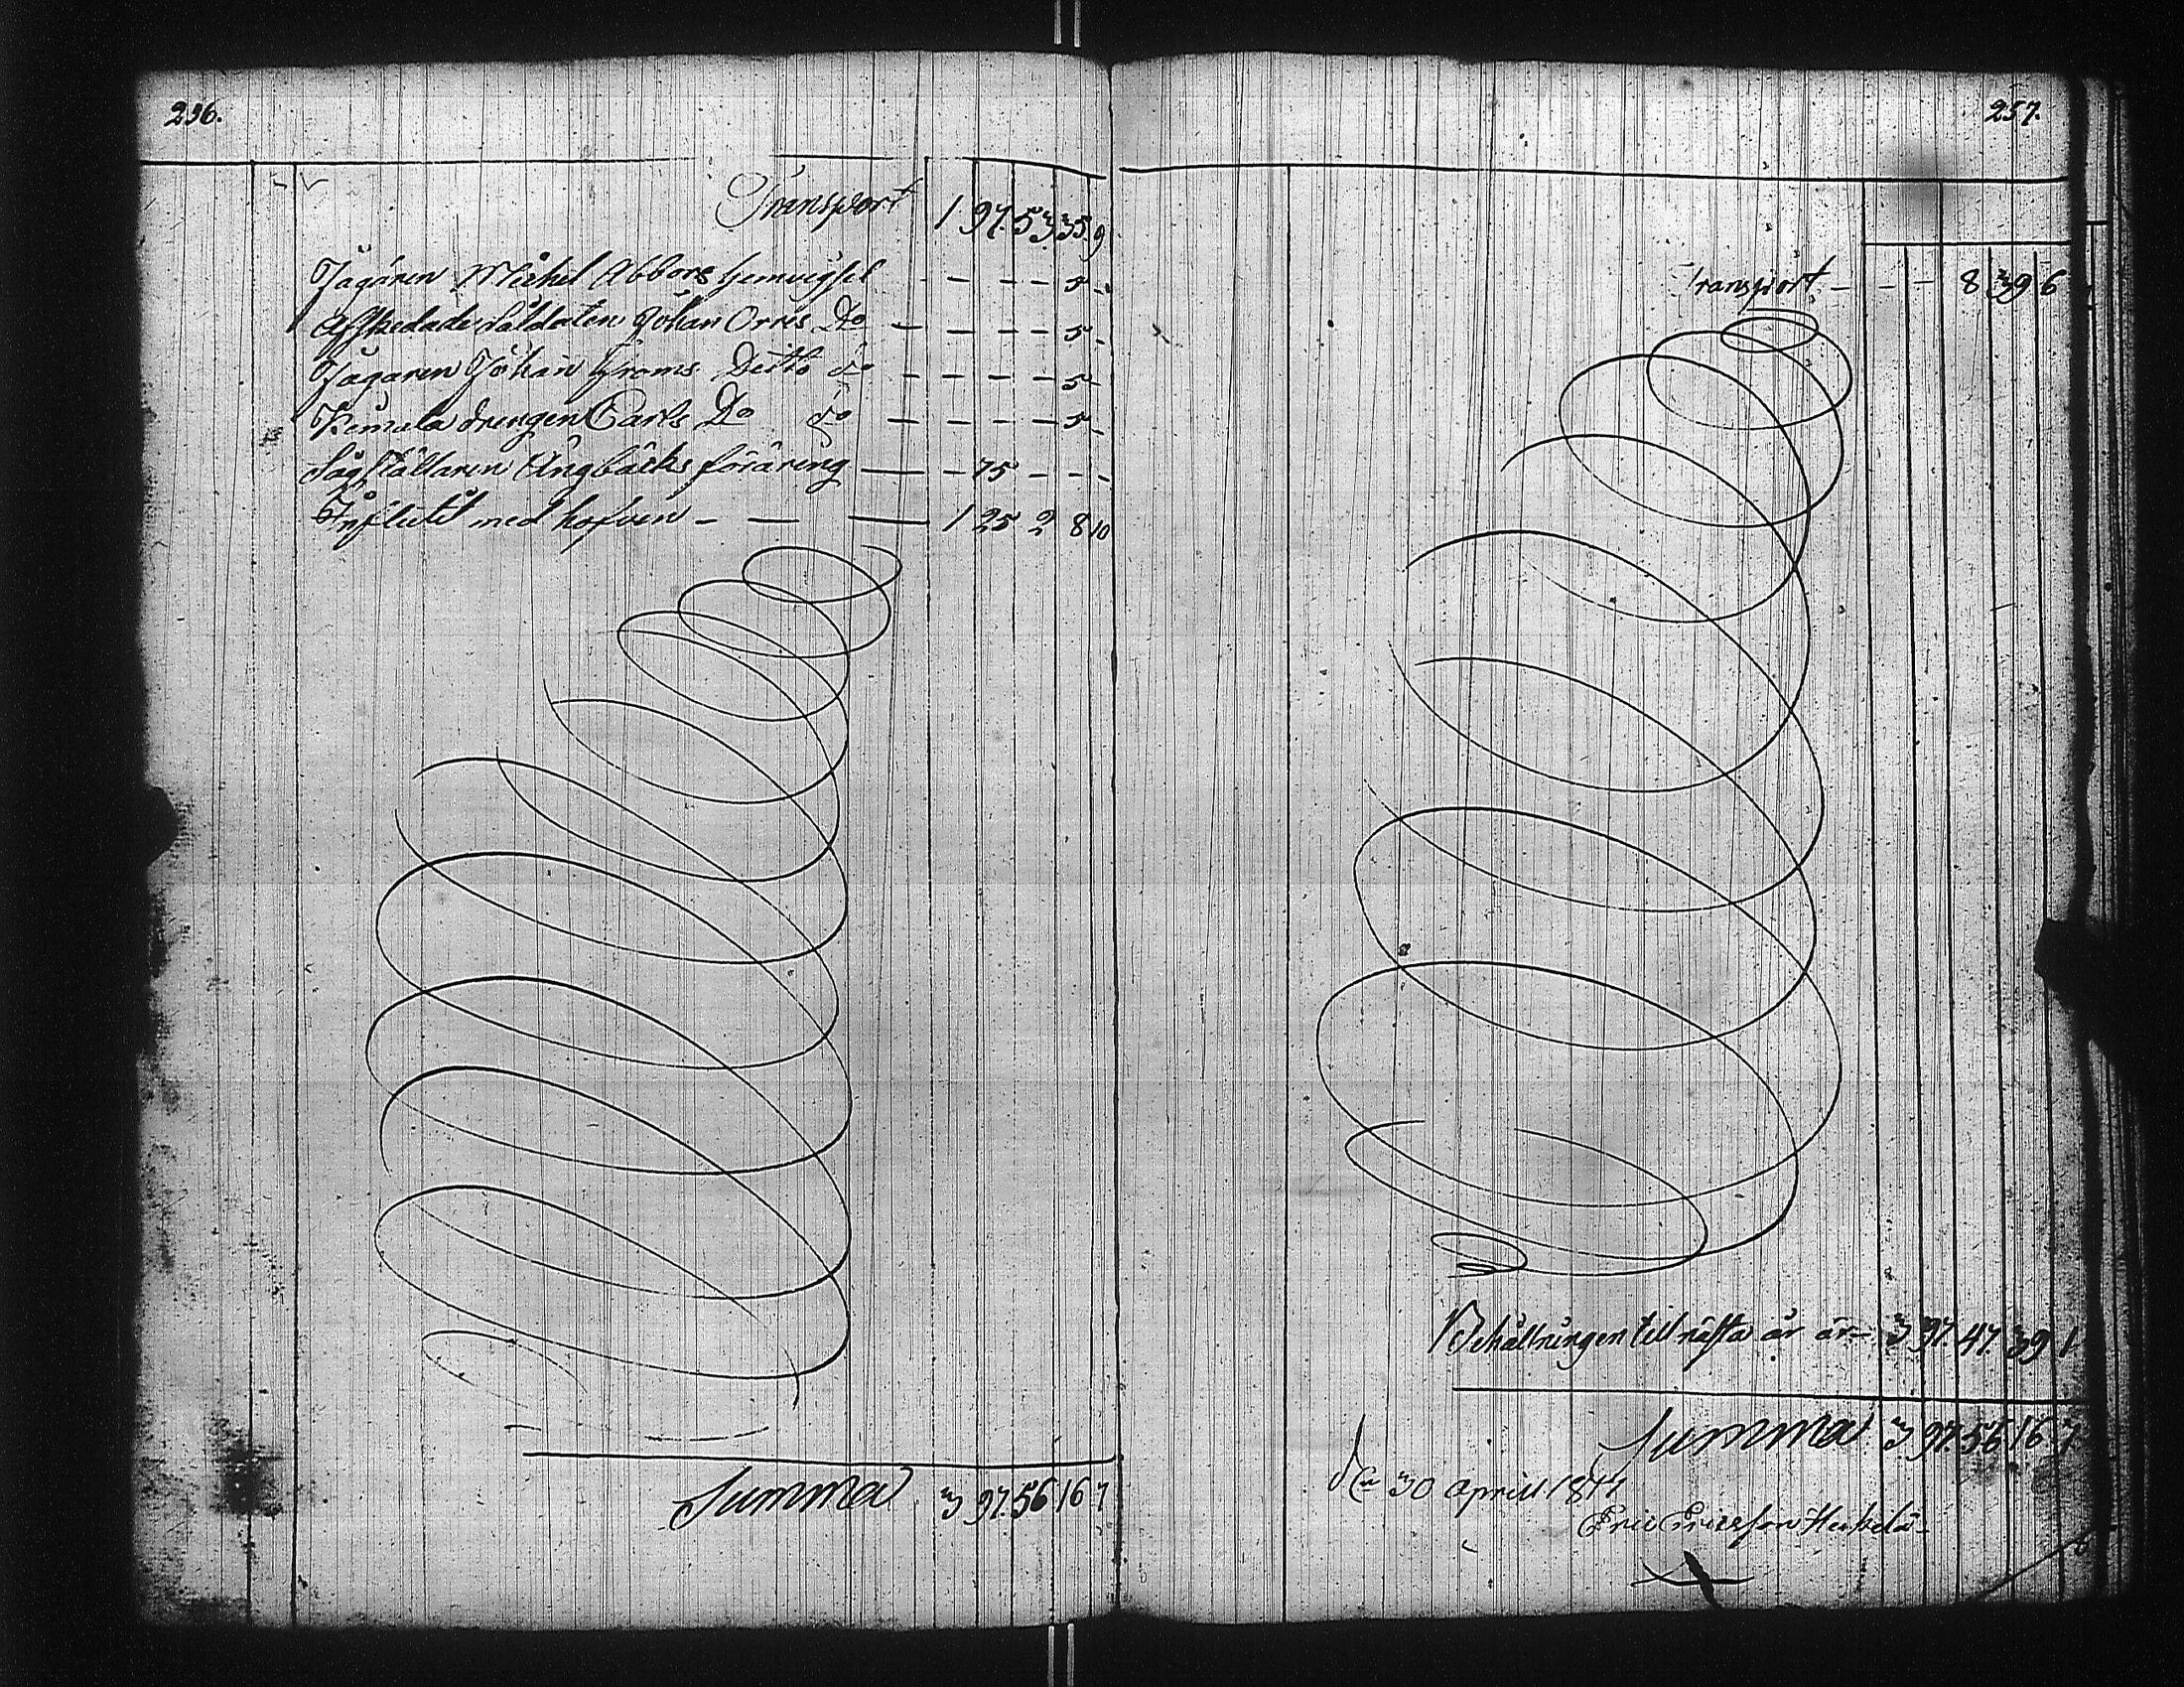 256.
Transport 1 97. 5 3. 35. 9
Jägaren Michel Abbors hemvigsel - - - - 5 -
Afskedade Soldaten Johan Orres Do - - - - 5 -
Jägaren Johan Groms Ditto do - - - - 5 -
Kimala drengen Carls Do do - - - - 5 -
Sågställaren Ungbäcks föräring - - 75 - - -
Influtit med hofven - - - 1 25 2 8 10
Summa 3 97. 56 16 7
257.
Transport - - - 8 39 6
Behållningen till näste år är - 3 97. 47. 39 1
Summa 3 97. 56 16 7
den 30 April 1844
Eric Ericsson